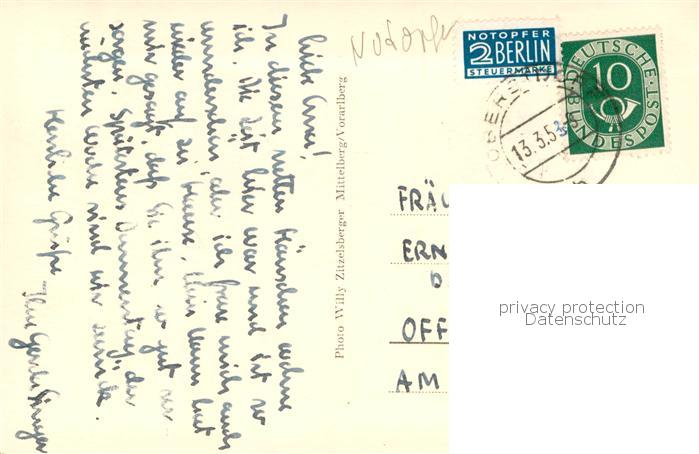 Liebe Erna!
In diesem netten Häuschen wohne
ich. Die Zeit hier war und ist so
wunderschön, aber ich freue mich auch
wieder auf zu Hause. Mein Mann hat
mir gesagt, daß Sie ihn so gut ver-
sorgen. Spätestens Donnerstag der
nächsten Woche sind wir zurück.
Herzliche Grüße
Ihre Gerda
Photo Willy Zitzelsberger Mittelberg/Vorarlberg
NOTOPFER
2 BERLIN
STEUERMARKE
DEUTSCHE
BUNDESPOST
10
13.3.5
FRÄU
ERN
OFF
AM
privacy protection
Datenschutz